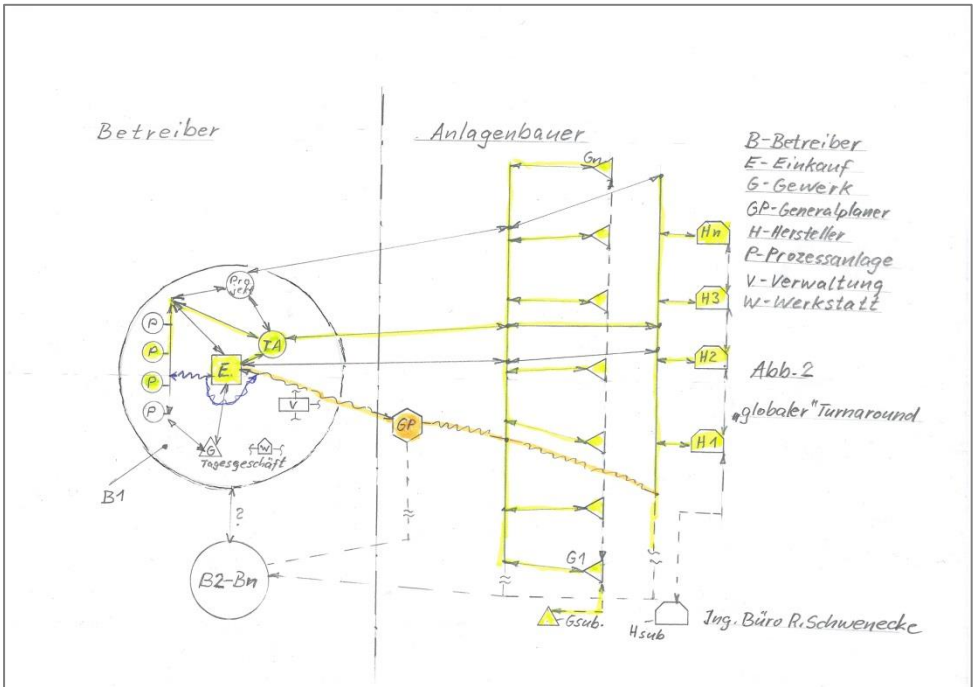 Betreiber
Anlagenbauer
B-Betreiber
E-Einkauf
G-Gewerk
GP-Generalplaner
H-Hersteller
P-Prozessanlage
V-Verwaltung
W-Werkstatt
Abb.2
"globaler" Turnaround
Gn
Hn
H3
H2
H1
Pro
jekt
P
P
P
P
TA
E
V
GP
G
W
Tagesgeschäft
B1
?
B2-Bn
G1
Gsub.
Hsub
Ing. Büro R. Schwenecke